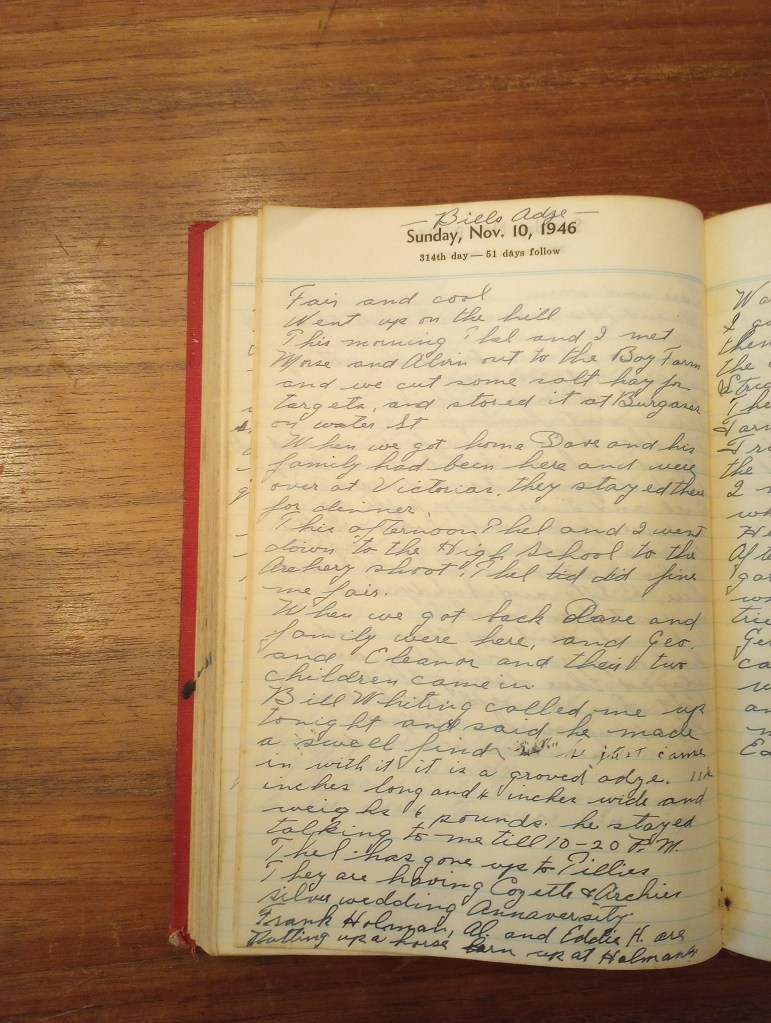 — Bills Adze —
Sunday, Nov. 10, 1946
314th day — 51 days follow
Fair and cool
Went up on the hill
This morning Thel and I met
Morse and Alvin out to the Bay Farm
and we cut some salt hay for
targets, and stored it at Burgases
on water St
When we got home Dave and his
family had been here and were
over at Victorias. they stayed there
for dinner.
This afternoon Thel and I went
down to the High School to the
Archery shoot. Thel tid did fine
me fair.
When we got back Dave and
family were here, and Geo.
and Eleanor and their two
children came in
Bill Whiting called me up
tonight and said he made
a swell find just came
in with it it is a groved adze. 11
inches long and 4 inches wide and
weighs 6 pounds. he stayed
talking to me till 10-20 P.M.
Thel has gone up to Tillies
They are having Cozette & Archies
silver wedding Annaversity
Frank Holman, Al, and Eddie H. are
Putting up a horse barn up at Holmans
Wa
I go
them
the
Stric
The
Farm
Tra
the
I
wh
He
Afte
gar
wo
trie
Ger
ca
w
an
m
Ea